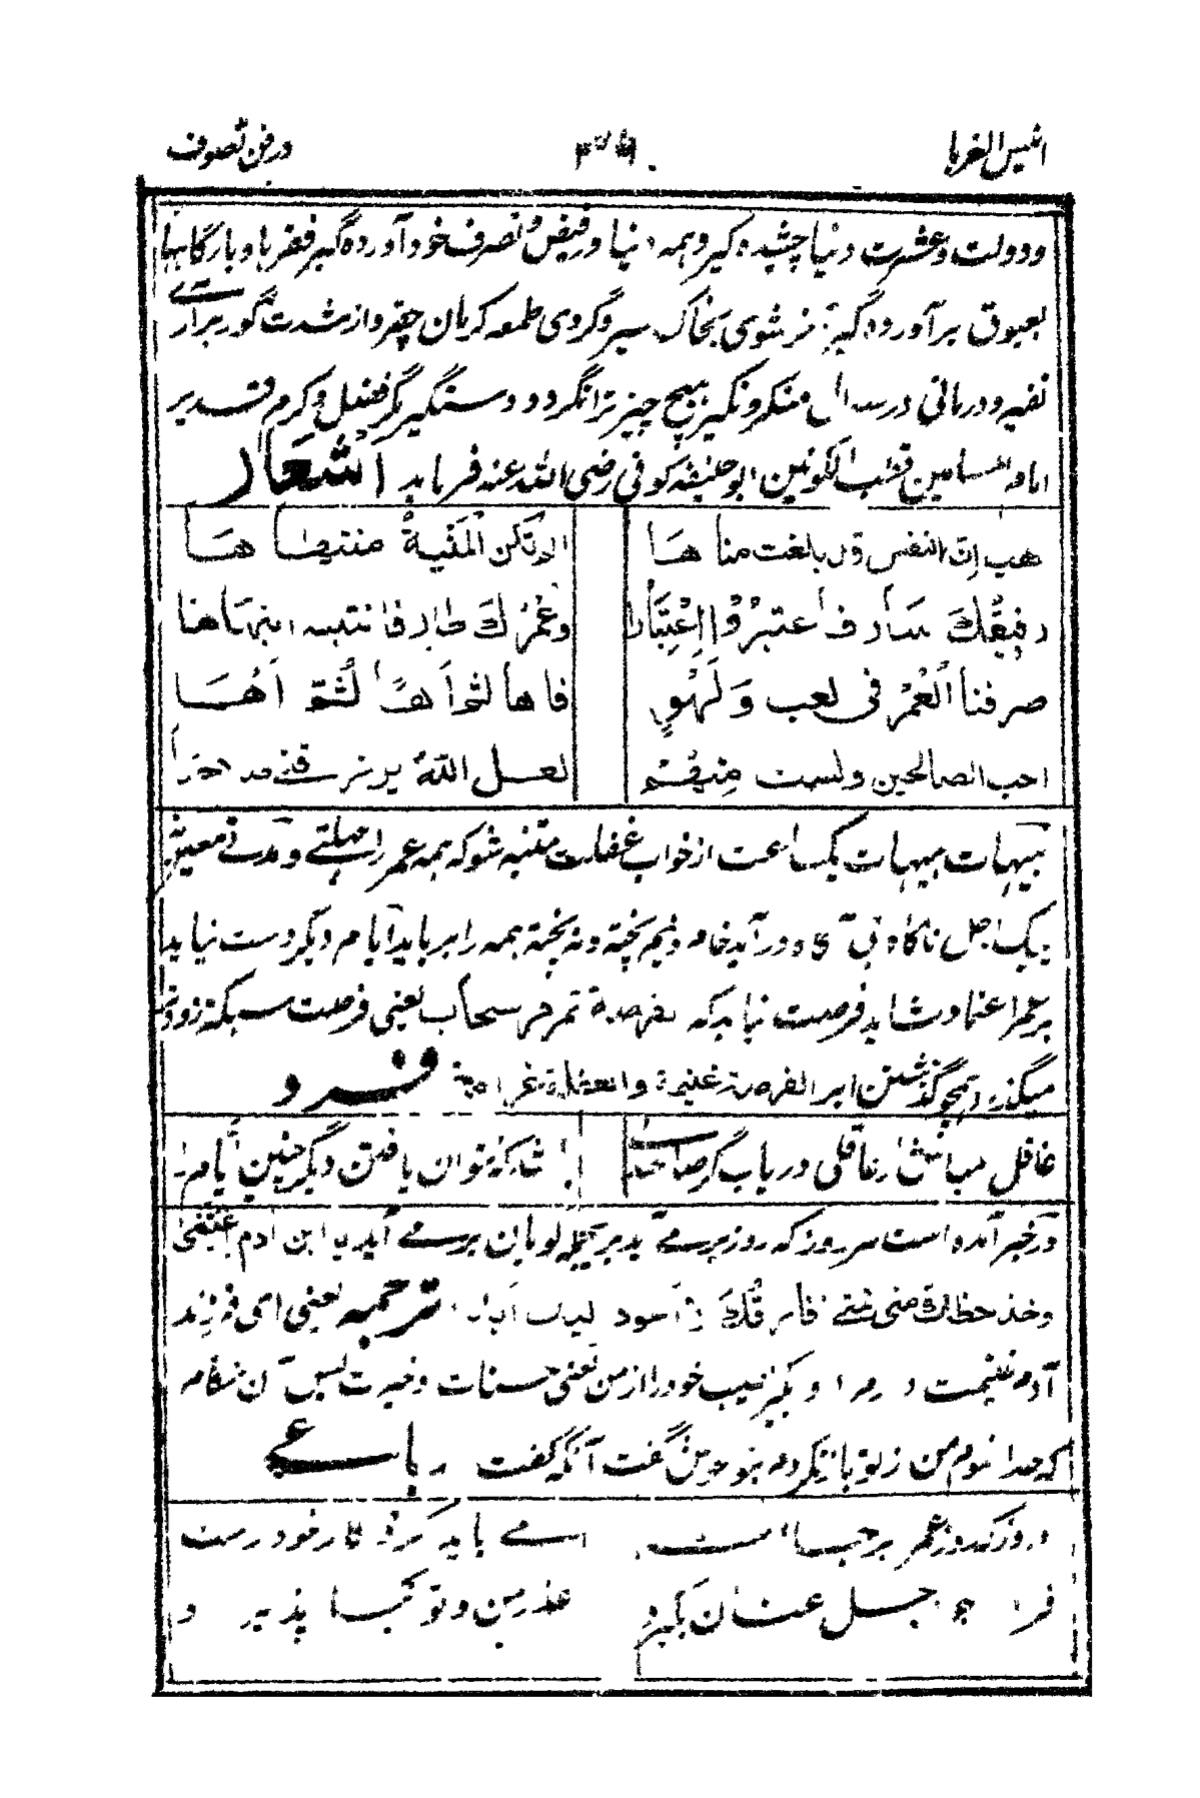 انیس الغربا
در فن تصوف
ودولت وعشرت دنیا چشیده گیر و همه دنیا در فیض و تصرف خود آورده گیر فقرها و بارگاهها
بعیوق برآورده گیر شوی بخاک سیر و گردی طعمه کرمان حقیر و از شدت گور برآری
نفیر و درمانی در سوال منکر و نکیر هیچ چیز ترا نگردد دستگیر مگر فضل و کرم قدیر
امام المسلمین قطب الکونین ابو حنیفه کوفی رضی الله عنه فرماید اشعار
هب ان النفس قد بلغت مناها
الم تکن المنیة منتهاها
رفیقك سار فاعتبروا اعتبارا
وعمرك طار فانتبه انتباها
صرفنا العمر فی لعب ولهو
فاها ثم اها ثم اها
احب الصالحین ولست منهم
لعل الله یرزقنی صلاحا
هیهات هیهات یکساعت از خواب غفلت متنبه شو که همه عمر را مهلتے و مدتے معین
پیک اجل ناگاه بی آگاه در آید خام و نیم پخته و نه پخته همه را برباید ایام دیگر دست نیاید
بر عمر اعتماد نشاید فرصت نپاید که الفرصة تمر مر سحاب یعنی فرصت سبکتر و زودتر
میگذرد همچو گذشتن ابر الفرصة غنیمة والغفلة غرامة فرد
غافل مباش ار عاقلی دریاب گر صاحبدلی
باشد که نتوان یافتن دیگر چنین ایام را
در خبر آمده است هر روز که روز برمے آید بر جمله لو بان برمے آید یا ابن ادم اغتنمنی
وخذ حظك منی فافارقك لیس ابدا ترجمه یعنی ای فرزند
آدم غنیمت دار مرا و بگیر نصیب خود را از من یعنی حسنات و خیرت پس آن هنگام
که جدا شوم من ز تو باز نگردم بتو همین گفت آنکه گفت رباعے
امروز که روز عمر برجا است
مے باید کرد کار خود راست
فردا چو اجل عنان بگیرد
عذر من و تو کجا پذیرد